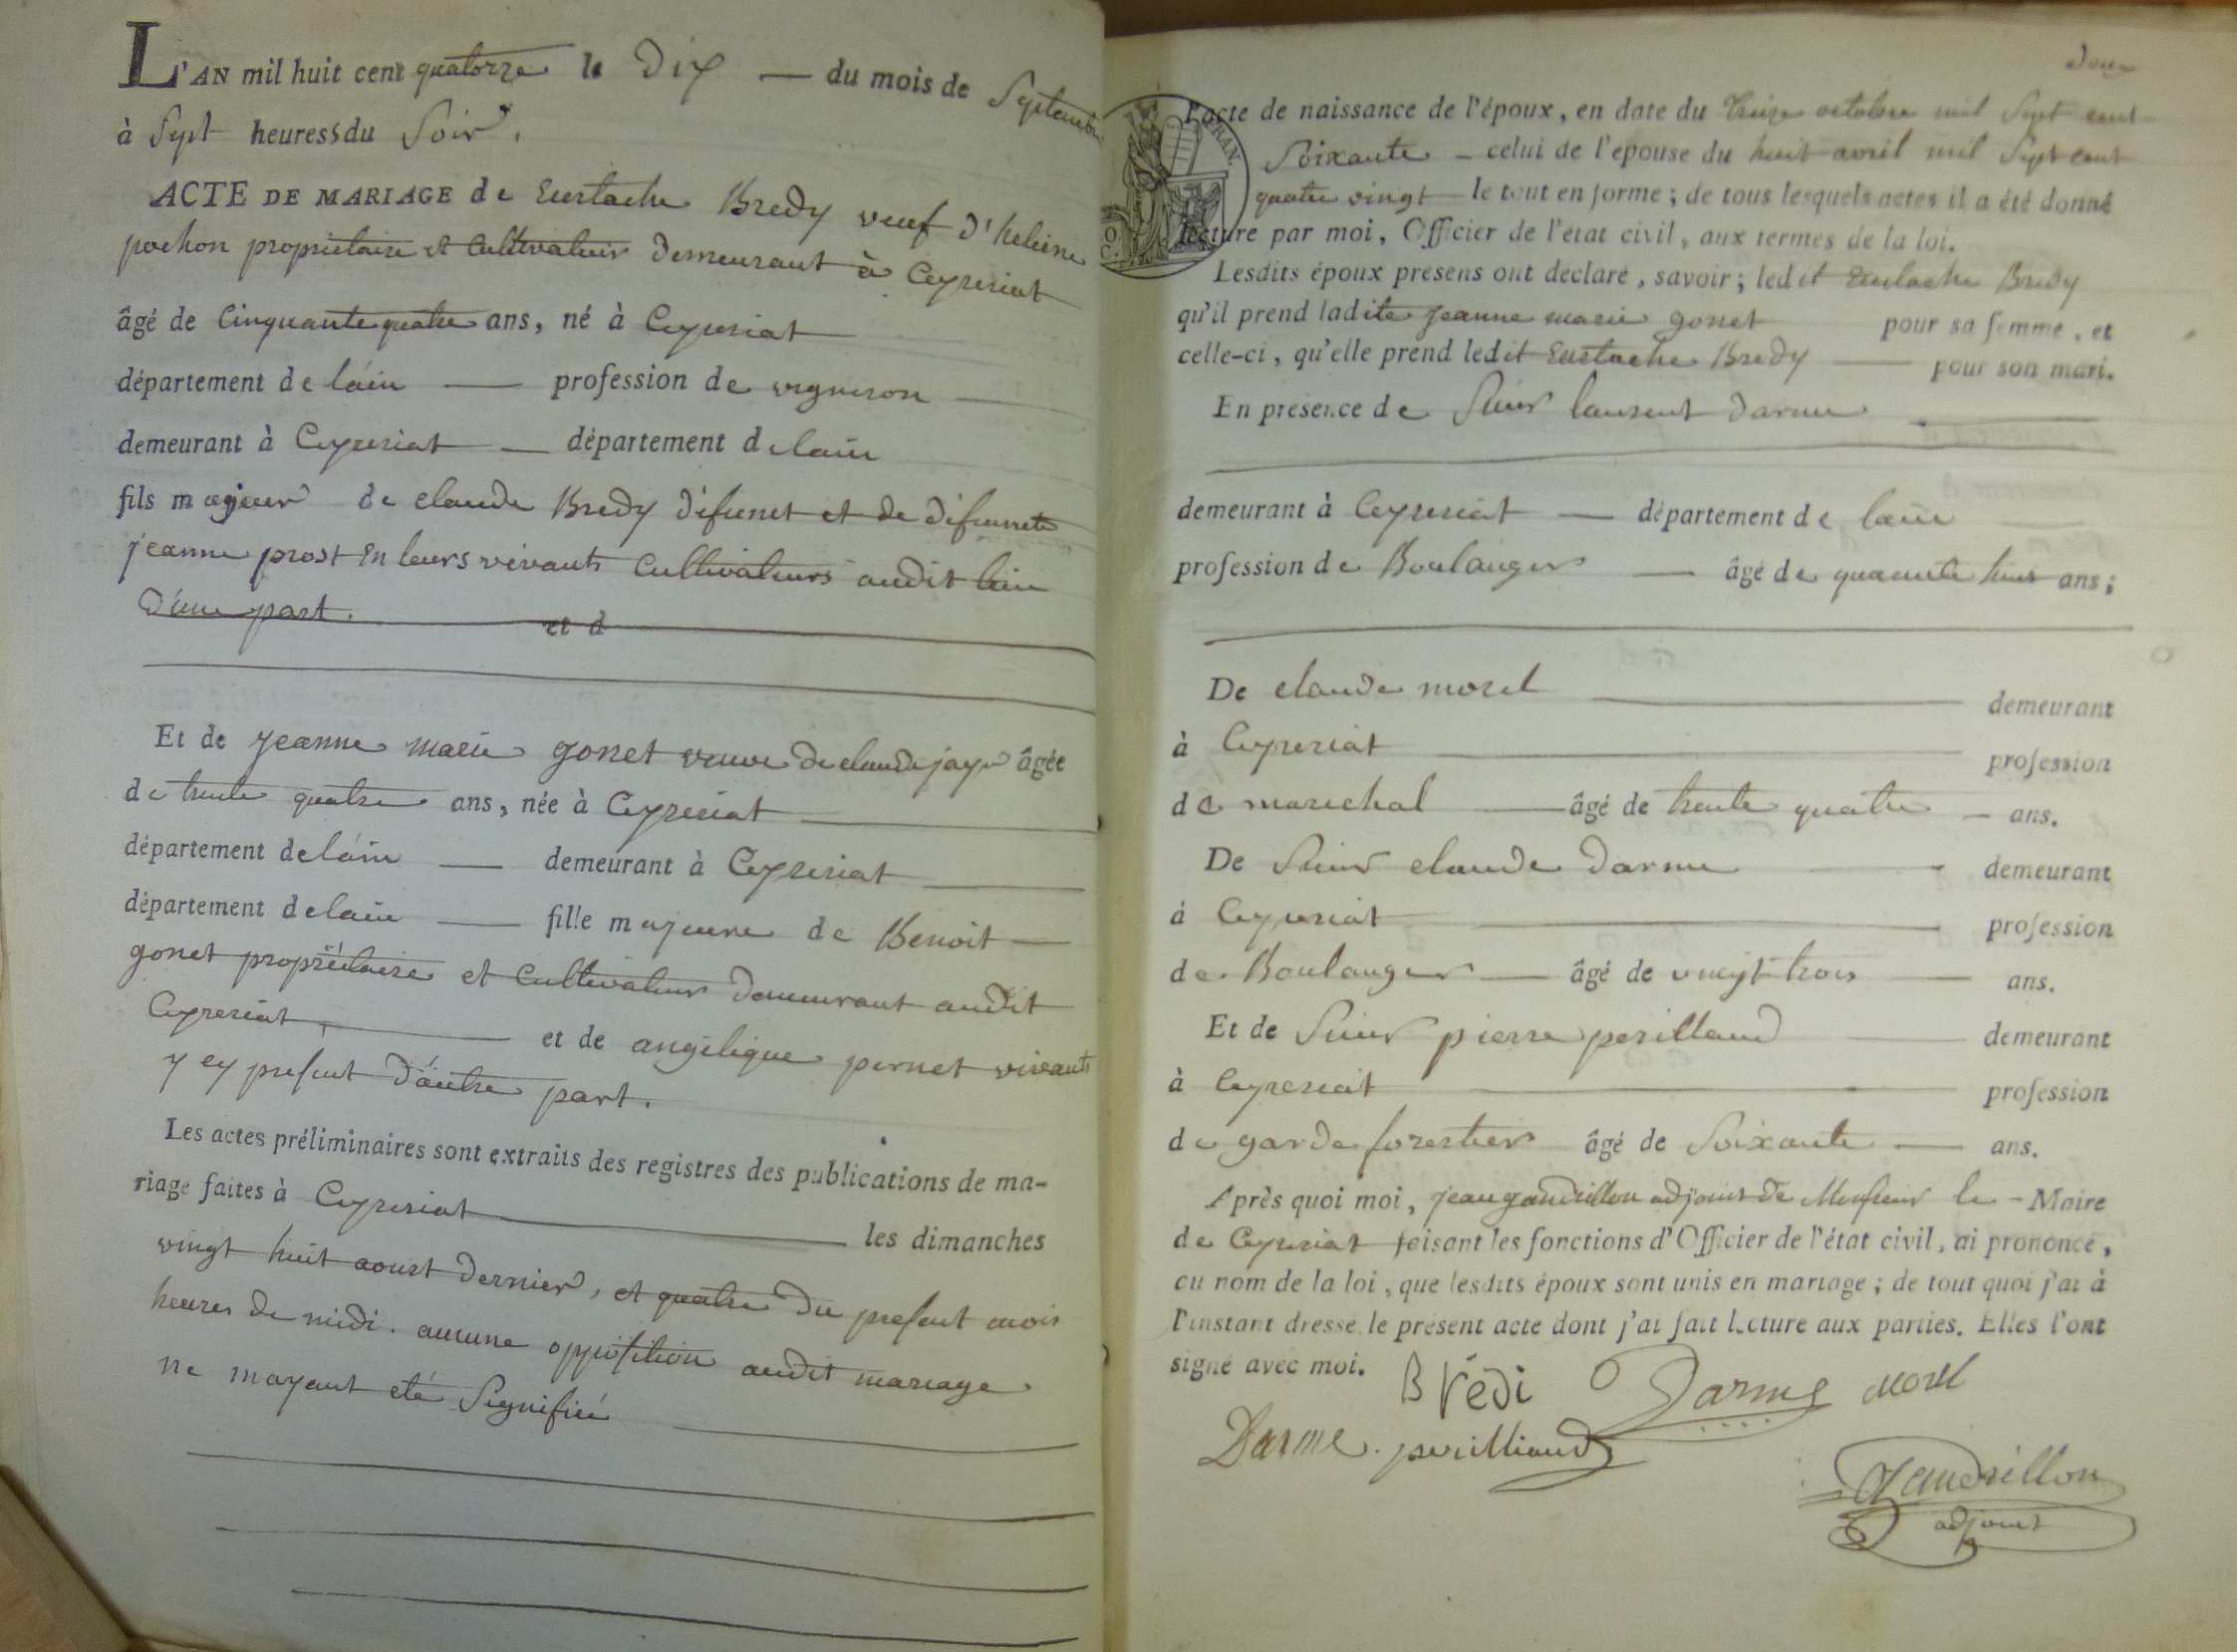 L'AN mil huit cent quatorze le dix — du mois de Septembre
à Sept heures du Soir.
ACTE DE MARIAGE de Eustache Bredy veuf d'helene
pochon propriétaire et Cultivateur demeurant à Ceyzeriat
âgé de Cinquante quatre ans, né à Ceyzeriat
département de l'ain — profession de vigneron
demeurant à Ceyzeriat — département de lain
fils majeur de claude Bredy défunct et de défunete
jeanne prost En leurs vivants Cultivateurs audit lieu
D'une part. et d
Et de jeanne marie gonet veuve de claude jayr âgée
de trente quatre ans, née à Ceyzeriat
département de l'ain — demeurant à Ceyzeriat
département de lain — fille majeure de Benoit
gonet propriétaire et Cultivateur demeurant audit
Ceyzeriat, et de angélique pernet vivants
y ey present d'autre part.
Les actes préliminaires sont extraits des registres des publications de ma-
riage faites à Ceyzeriat les dimanches
vingt huit aoust dernier, et quatre du present mois
heures de midi. aucune opposition audit mariage
ne mayant eté Signifiée
deux
l'acte de naissance de l'époux, en date du treize octobre mil Sept cent
Soixante — celui de l'épouse du huit avril mil Sept cent
quatre vingt le tout en forme; de tous lesquels actes il a été donné
lecture par moi, Officier de l'état civil, aux termes de la loi.
Lesdits époux présens ont déclaré, savoir; ledit Eustache Bredy
qu'il prend ladite jeanne marie gonet pour sa femme, et
celle-ci, qu'elle prend ledit Eustache Bredy — pour son mari.
En présence de Sieur laurent Darme
demeurant à Ceyzeriat — département de lain
profession de Boulanger — âgé de quarante huit ans;
De claude morel demeurant
à Ceyzeriat profession
de marechal — âgé de trente quatre — ans.
De Sieur claude Darme demeurant
à Ceyzeriat profession
de Boulanger — âgé de vingt trois — ans.
Et de Sieur pierre perilland demeurant
à Ceyzeriat profession
de garde forestier âgé de Soixante — ans.
Après quoi moi, jean gandrillon adjoint de Monsieur le - Maire
de Ceyzeriat faisant les fonctions d'Officier de l'état civil, ai prononcé,
au nom de la loi, que lesdits époux sont unis en mariage; de tout quoi j'ai à
l'instant dressé le présent acte dont j'ai fait lecture aux parties. Elles l'ont
signé avec moi. Bredi Darme morel
Darme. perilliand
gandrillon
adjoint